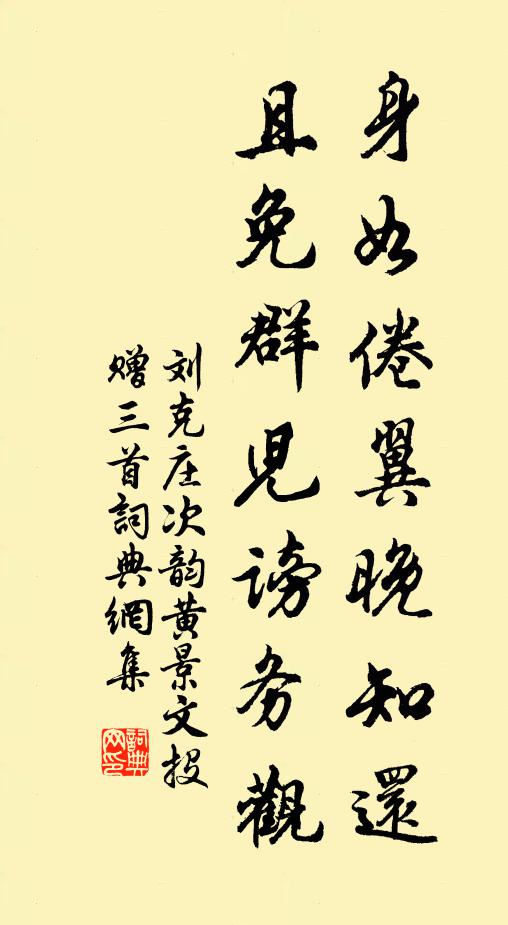 身如倦翼晚知還
且免群兒謗务觀
刘克庄次韵黄景文投
赠三首詞典網集
詞典网印